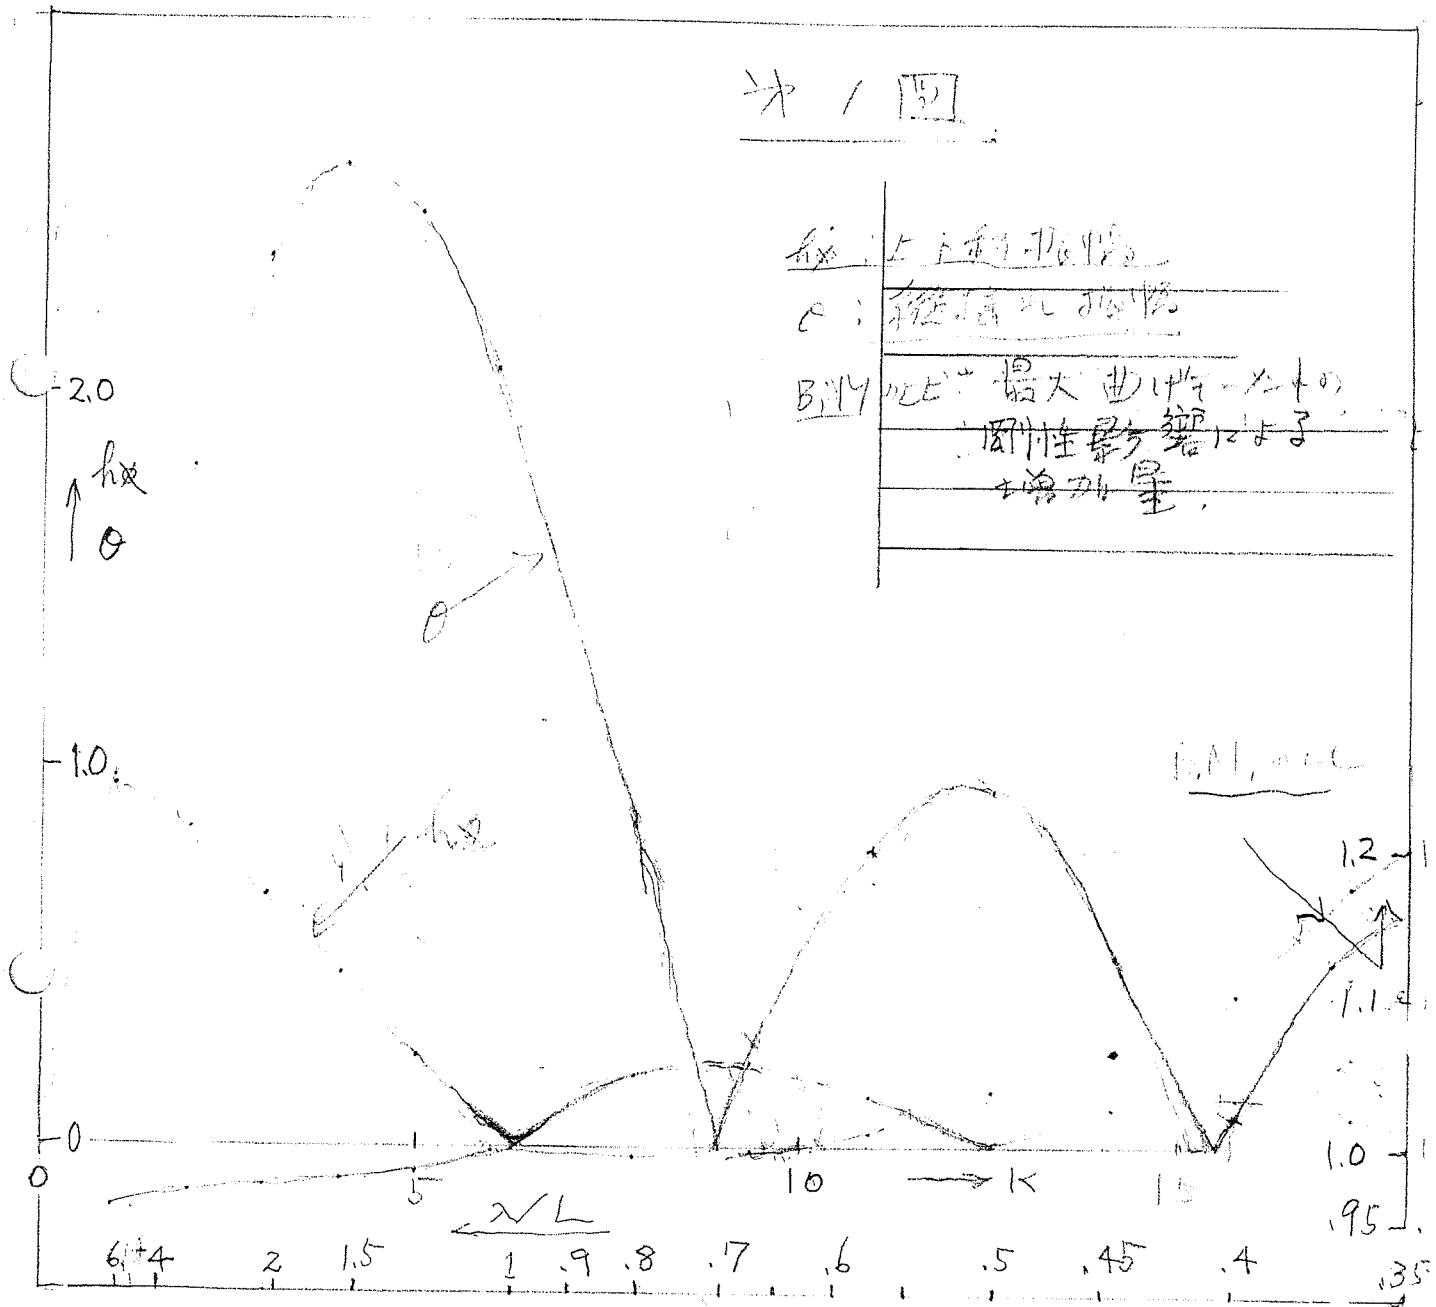 第1図
hx : 上下動振幅
θ : 縦揺れ振幅
最大曲げモーメントの
剛性影響による
増加量.
2.0
hx
θ
θ
1.0
hx
1.2
1.1
0
1.0
0
5
10
→ K
15
.95
λ/L
6
4
2
1.5
1
.9
.8
.7
.6
.5
.45
.4
.35